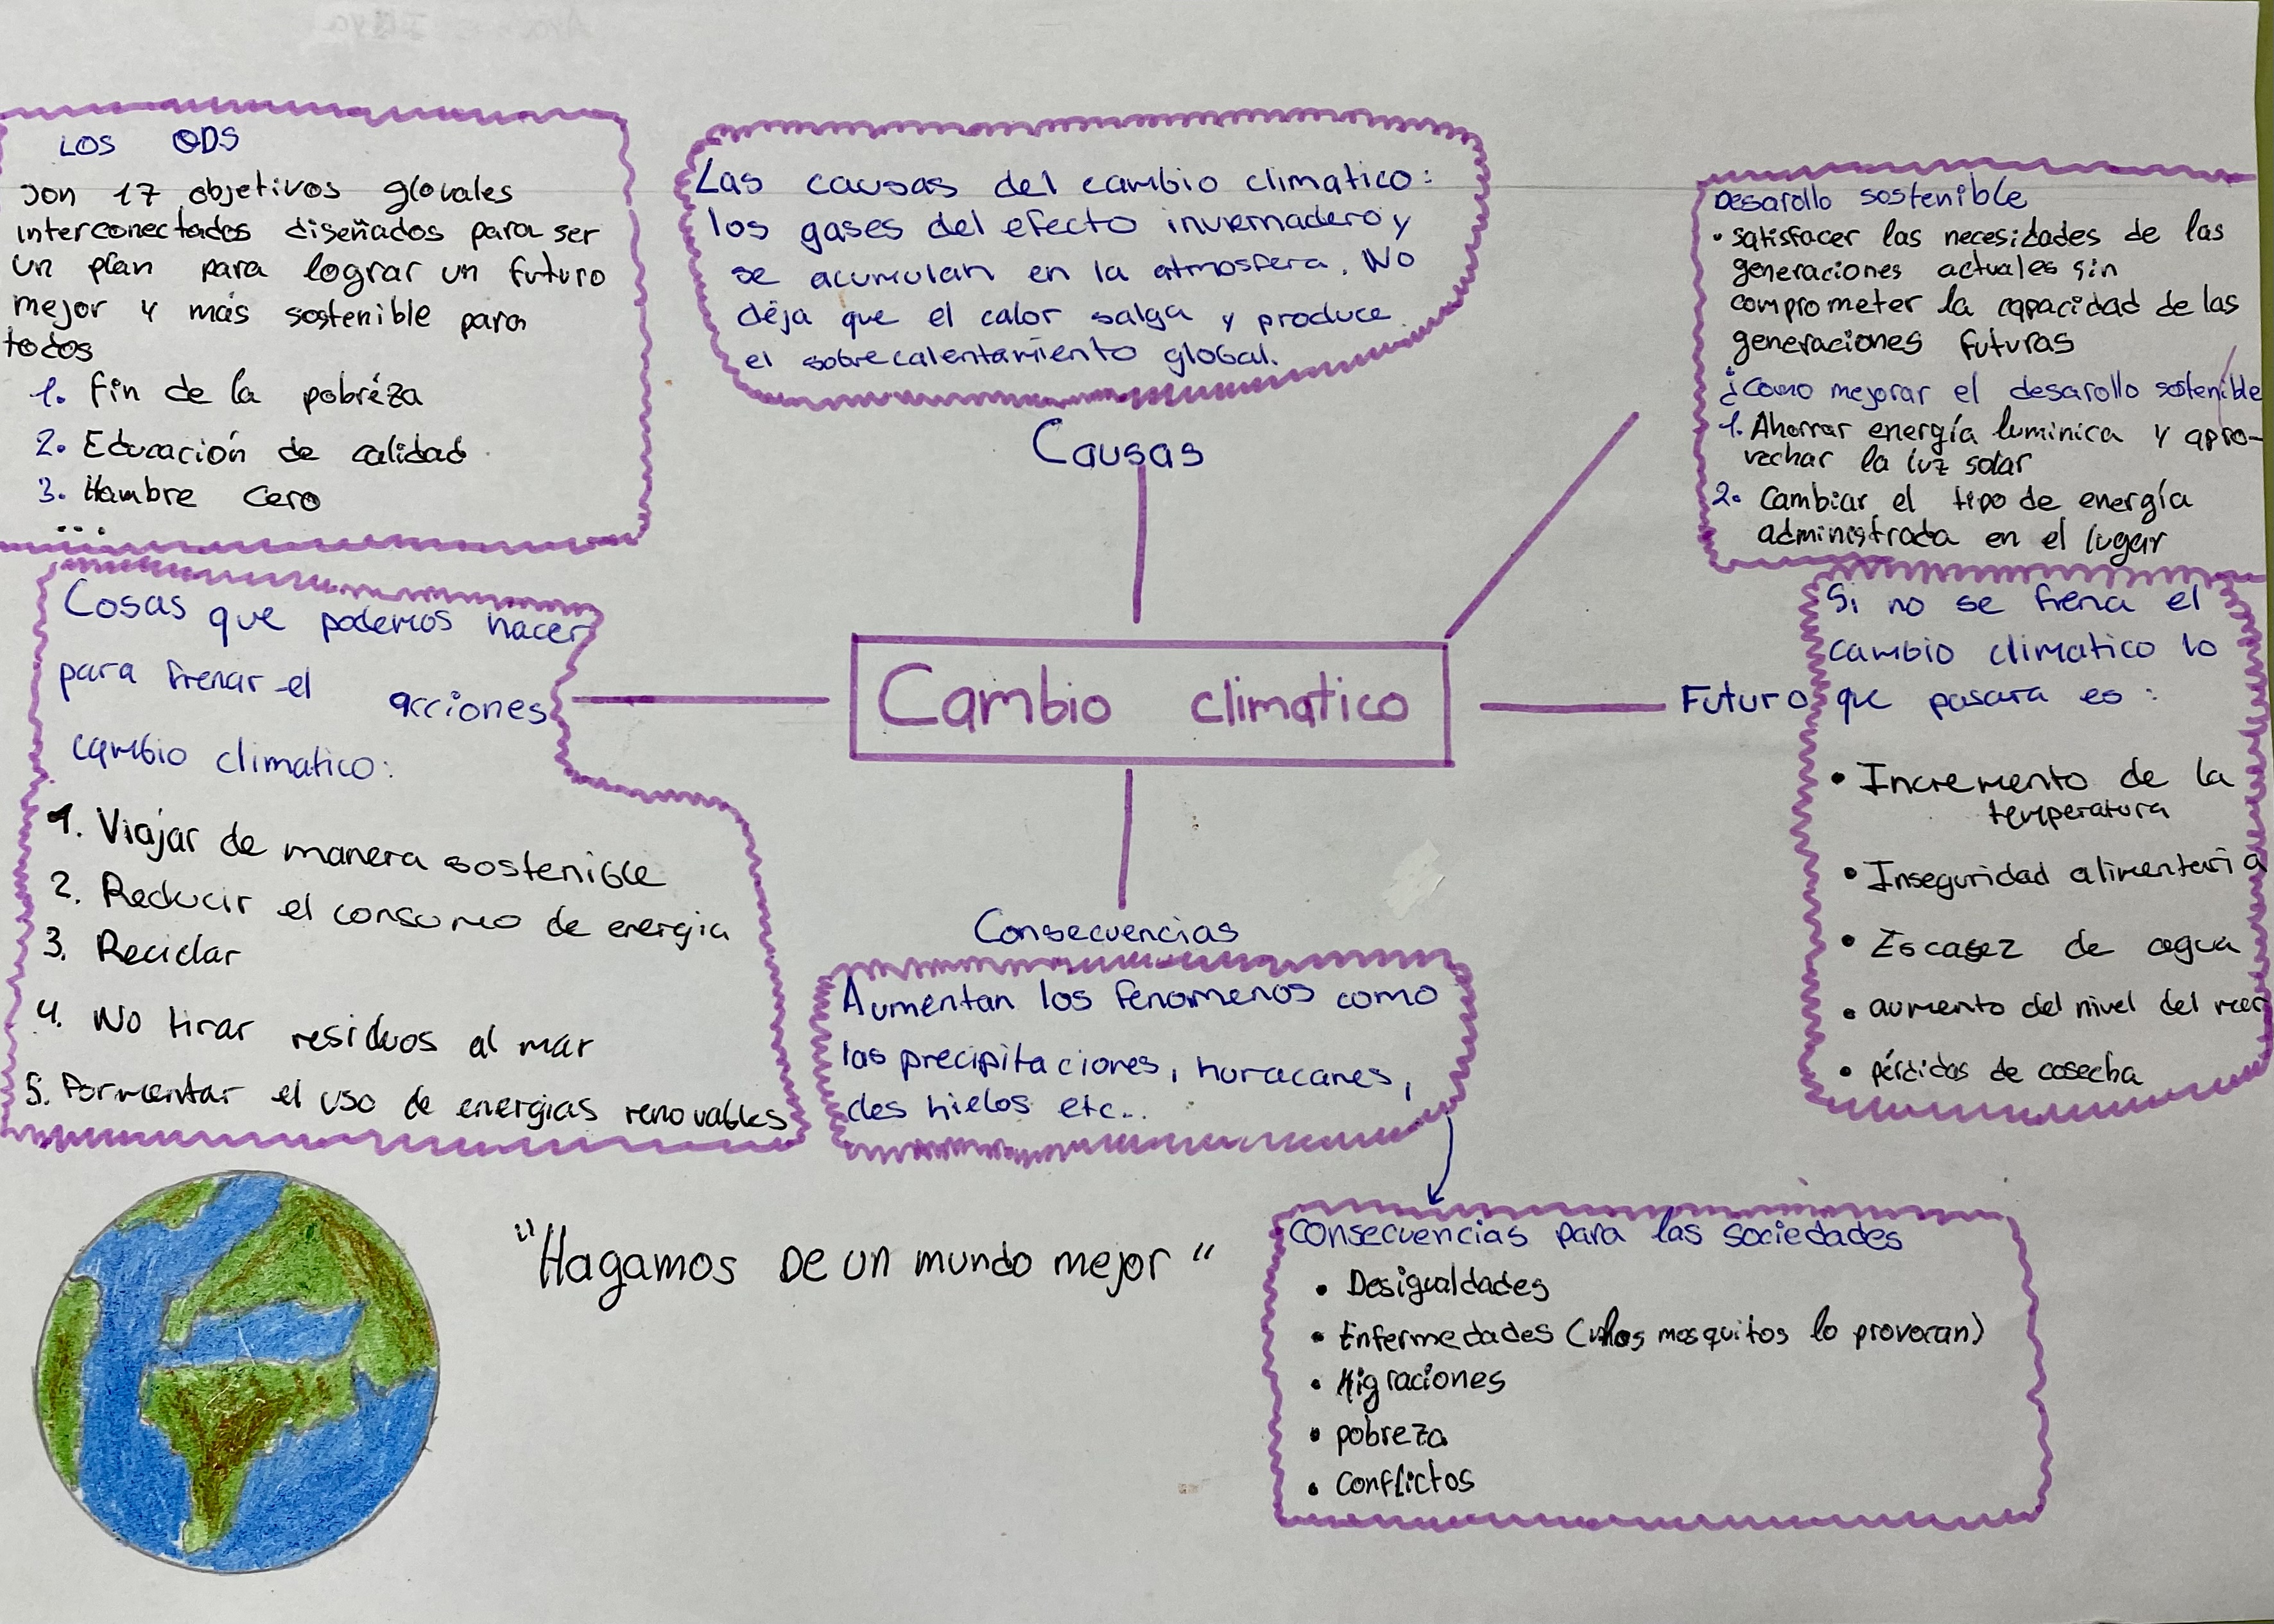 LOS ODS
son 17 objetivos glovales
interconectados diseñados para ser
un plan para lograr un futuro
mejor y más sostenible para
todos
1. Fin de la pobréza
2. Educación de calidad
3. Hambre Cero
...
Las causas del cambio climatico:
los gases del efecto invernadero y
se acumulan en la atmosfera. No
deja que el calor salga y produce
el sobrecalentamiento global.
Causas
Desarollo sostenible
• satisfacer las necesidades de las
generaciones actuales sin
comprometer la capacidad de las
generaciones futuras
¿Como mejorar el desarollo sostenible
1. Ahorrar energía luminica y apro-
vechar la luz solar
2. Cambiar el tipo de energía
administrada en el lugar
Cosas que podemos hacer
para frenar el
acciones
cambio climatico:
1. Viajar de manera sostenible
2. Reducir el consumo de energia
3. Reciclar
4. No tirar residuos al mar
5. Formentar el uso de energias renovables
Cambio climatico
Futuro
Si no se frena el
cambio climatico lo
que pasara es:
• Incremento de la
temperatura
• Inseguridad alimentaria
• Escasez de agua
• aumento del nivel del mar
• pérdidas de cosecha
Consecuencias
Aumentan los fenomenos como
las precipitaciones, huracanes,
des hielos etc...
"Hagamos De un mundo mejor"
Consecuencias para las sociedades
• Desigualdades
• Enfermedades (los mosquitos lo provocan)
• Migraciones
• pobreza
• Conflictos